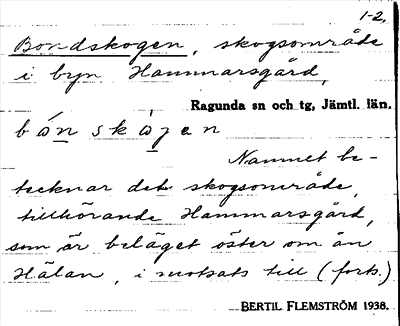 1-2.
Bondskogen, skogsområde
i byn Hammarsgård,
Ragunda sn och tg, Jämtl. län.
bónskòjen
Namnet be-
tecknar det skogsområde,
tillhörande Hammarsgård,
som är beläget öster om ån
Hälan, i motsats till (forts.)
BERTIL FLEMSTRÖM 1938.